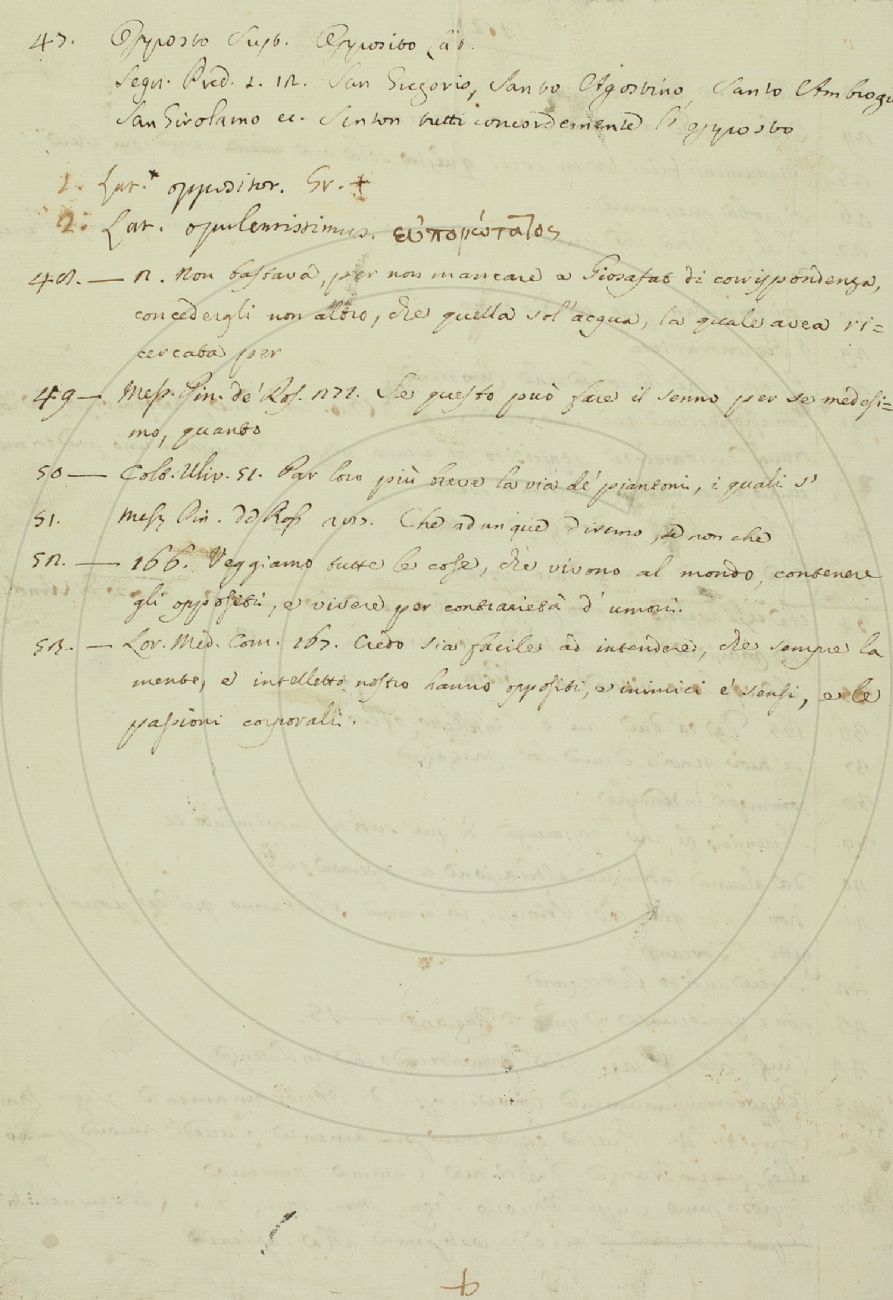 47. Opposto Sust. Opposito Lat.
Segn. Pred. 2. 12. San Gregorio, Santo Agostino, Santo Ambrogi
San Girolamo ec. tutti concordemente l'opposto
1. Lat. * oppositor. Gr. +
2. Lat. opulentissimus. εὐπορώτατος
48. — 2. Non bastava, per non mancare a Giosafat di corrispondenza,
concedergli non altro, che quella sol' acqua, la quale avea ri=
cercata per
49 — Mess. Cin. de' Ros. 272. Se questo può fare il senno per se medesi=
mo, quanto
50 — Colt. Uliv. 51. Par loro più breve la via de' piantoni, i quali s'
51. Mess. Cin. Ros. Che adunque diremo, se non che
52. — 166. Veggiamo tutte le cose, che vivono al mondo, contenere
gli oppositi, e vivere per contrarietà d' umori.
53. — Lor. Med. Com. 167. Credo sia facile ad intendere, che sempre la
mente, e intelletto nostro hanno oppositi, e inimici e' sensi, e le
passioni corporali.